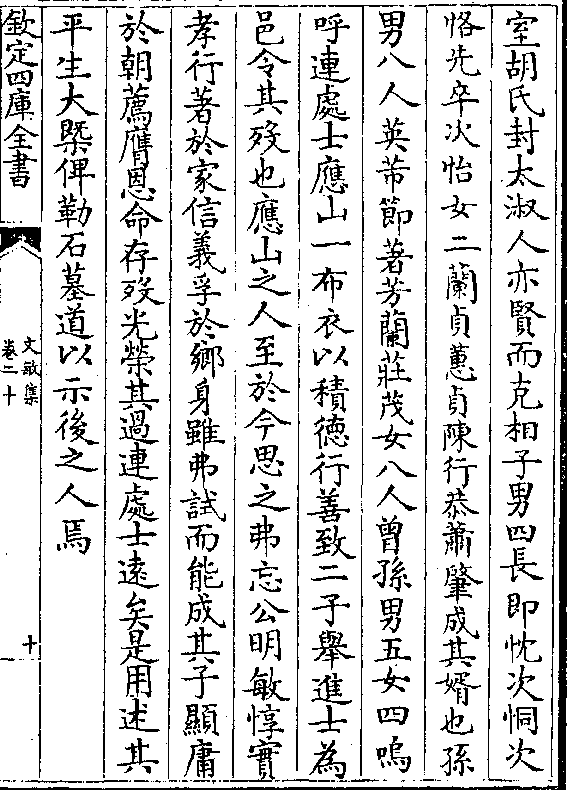 室胡氏封太淑人亦賢而克相子男四長即忱次恫次
恪先卒次怡女二蘭貞蕙貞陳行恭蕭肇成其婿也孫
男八人英芾節著芳蘭莊茂女八人曾孫男五女四嗚
呼連處士應山一布衣以積徳行善致二子舉進士為
邑令其歿也應山之人至於今思之弗忘公明敏惇實
孝行著於家信義孚於鄉身雖弗試而能成其子顯庸
於朝薦膺恩命存歿光榮其過連處士逺矣是用述其
平生大槩俾勒石墓道以示後之人焉
欽定四庫全書
文敏集
卷二十
十